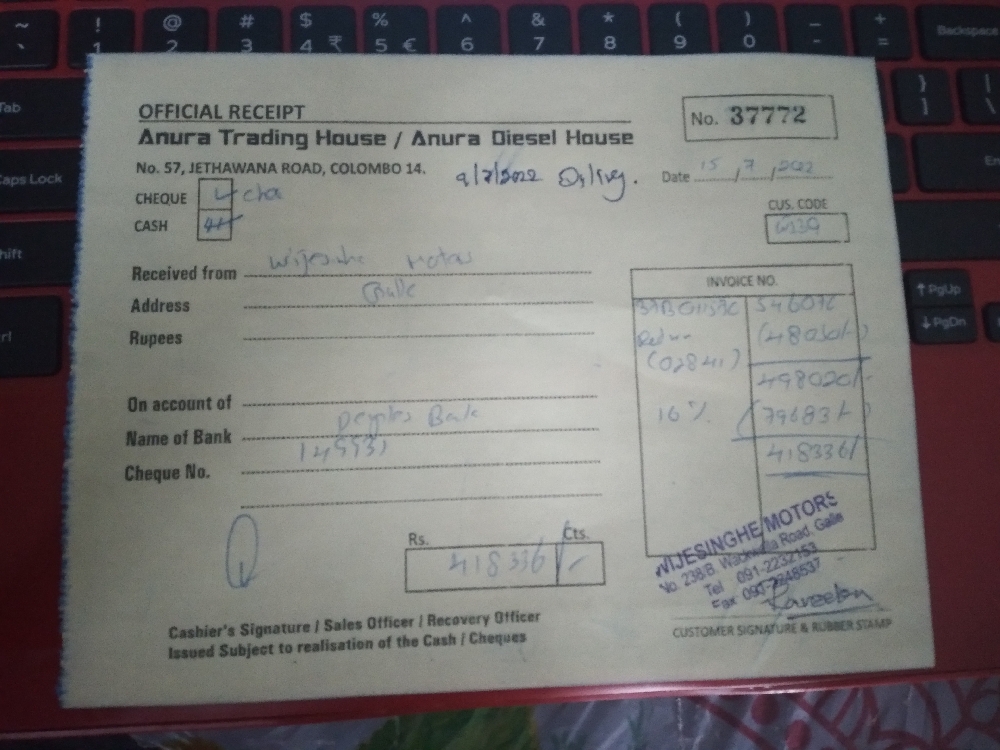 OFFICIAL RECEIPT
No. 37772
Anura Trading House / Anura Diesel House
No. 57, JETHAWANA ROAD, COLOMBO 14.
9/7/2022
Date 15/7/2022
CHEQUE
CASH
CUS. CODE
Received from Wijesinghe Motors
Address Galle
Rupees
On account of
Name of Bank Peoples Bank
Cheque No.
INVOICE NO.
546070
Return (48050/-)
(02841)
498020/-
16% (79683/-)
418336/-
Rs. Cts.
418336/-
WIJESINGHE MOTORS
No. 238/B, Wackwella Road, Galle
Tel 091-2232153
Fax
Cashier's Signature / Sales Officer / Recovery Officer
Issued Subject to realisation of the Cash / Cheques
CUSTOMER SIGNATURE & RUBBER STAMP
~ ! @ # $ % ^ & * ( ) _ +
` 1 2 3 4 ₹ 5 € 6 7 8 9 0 - =
Backspace
Tab
} |
] \
Caps Lock
En
hift
↑ PgUp
↓ PgDn
rl